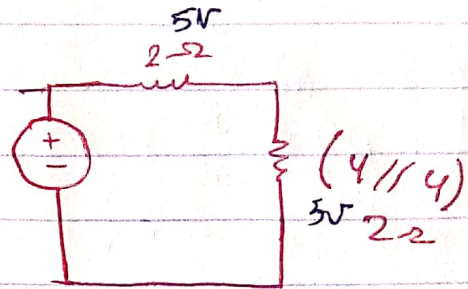 5V
2Ω
+
−
(4//4)
5V 2Ω